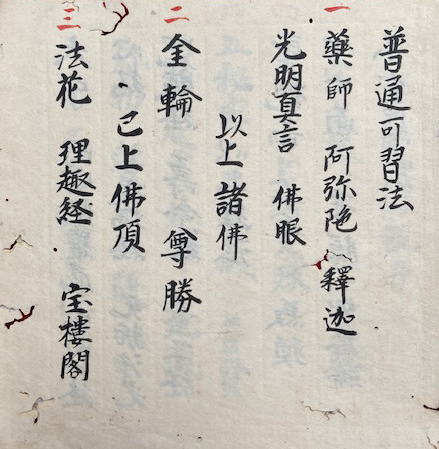 普通可習法
一
藥師 阿弥陁 釋迦
光明真言 佛眼
以上諸佛
二
金輪 尊勝
已上佛頂
三
法花 理趣経 宝樓閣